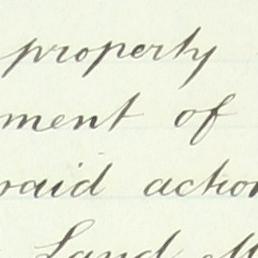 property
ment of
said action
Land